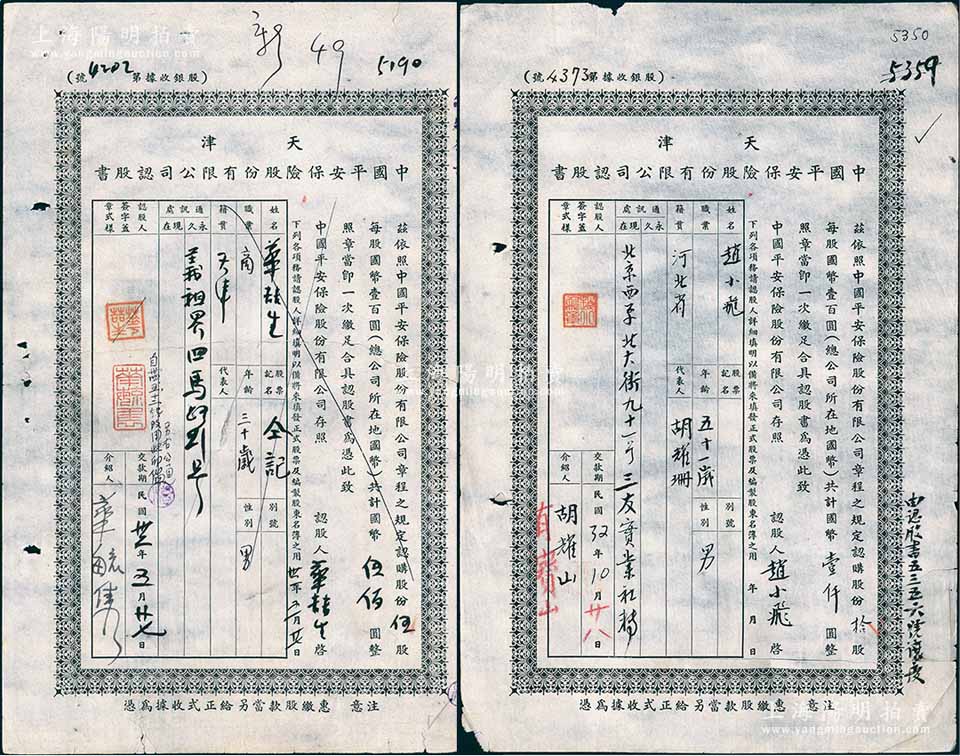 上海陽明拍賣
www.yangmingauction.com
49
5190
（號4202第據收銀股）
天津
中國平安保險股份有限公司認股書
茲依照中國平安保險股份有限公司章程之規定認購股份伍股
每股國幣壹百圓（總公司所在地國幣）共計國幣伍佰圓整
照章當即一次繳足合具認股書為憑此致
中國平安保險股份有限公司存照
認股人
啓
下列各項務請認股人詳細填明以備將來填發正式股票及編製股東名簿之用
姓名
股票記名
仝記
別號
職業
商
年齡
三十歲
性別
男
籍貫
天津
代表人
通訊處
永久
現在
義租界四馬路
認股人簽字蓋章式樣
交款期
民國卅三年五月廿七日
介紹人
注意 惠繳股款當另給正式收據為憑
5350
5359
（號4373第據收銀股）
天津
中國平安保險股份有限公司認股書
茲依照中國平安保險股份有限公司章程之規定認購股份拾股
每股國幣壹百圓（總公司所在地國幣）共計國幣壹仟圓整
照章當即一次繳足合具認股書為憑此致
中國平安保險股份有限公司存照
認股人趙小飛啓
年 月 日
下列各項務請認股人詳細填明以備將來填發正式股票及編製股東名簿之用
姓名
趙小飛
股票記名
別號
職業
年齡
五十一歲
性別
男
籍貫
河北省
代表人
胡耀珊
通訊處
永久
現在
北京西單北大街九十一号三友實業社轉
認股人簽字蓋章式樣
交款期
民國32年10月廿八日
介紹人
胡耀山
注意 惠繳股款當另給正式收據為憑
由認股書五三五六號續度
上海陽明拍賣
www.yangmingauction.com